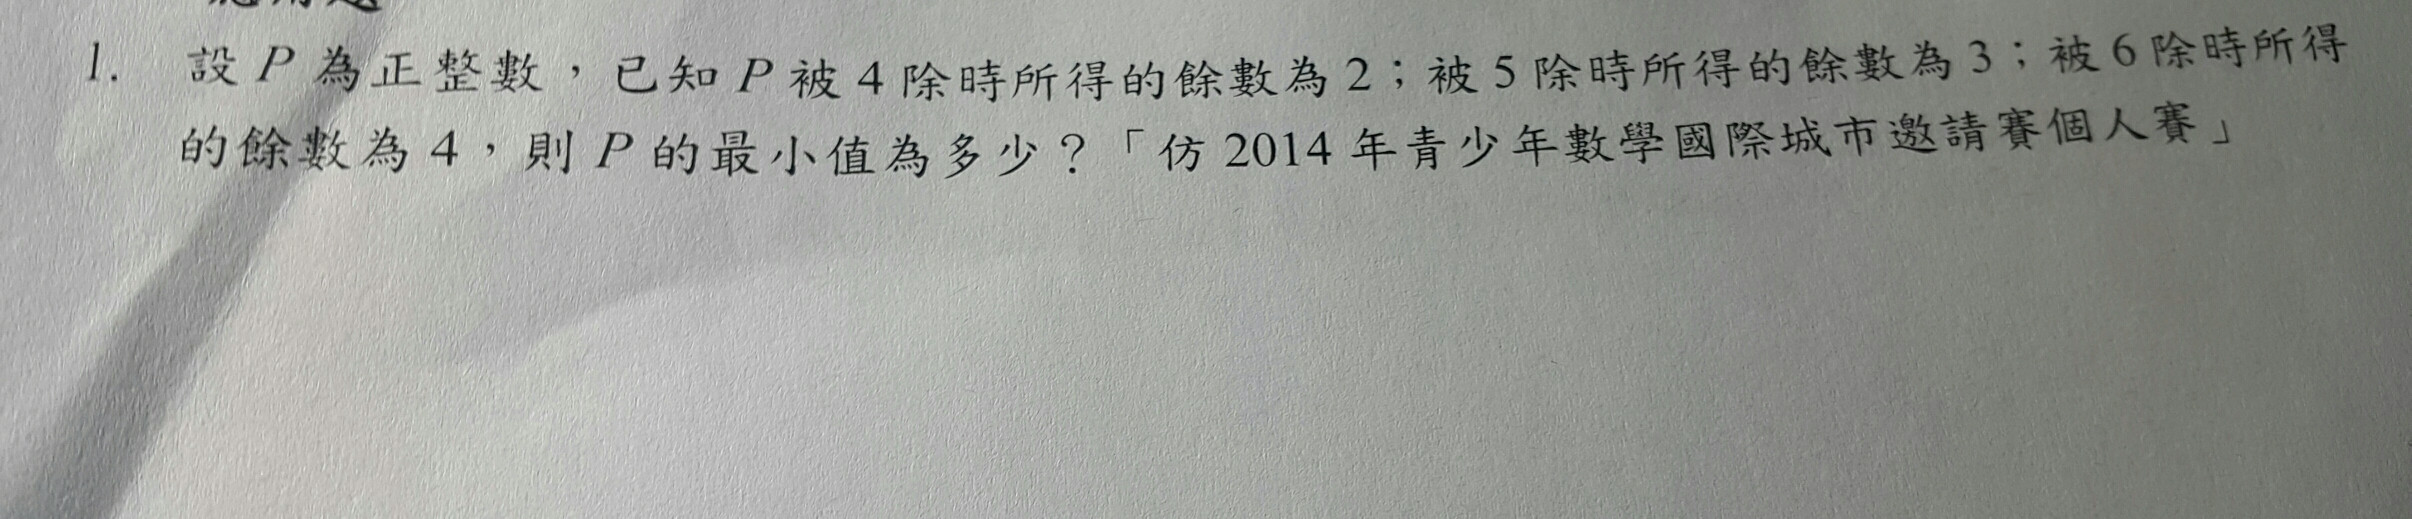 1. 設 P 為正整數,已知 P 被 4 除時所得的餘數為 2;被 5 除時所得的餘數為 3;被 6 除時所得
的餘數為 4,則 P 的最小值為多少?「仿 2014 年青少年數學國際城市邀請賽個人賽」